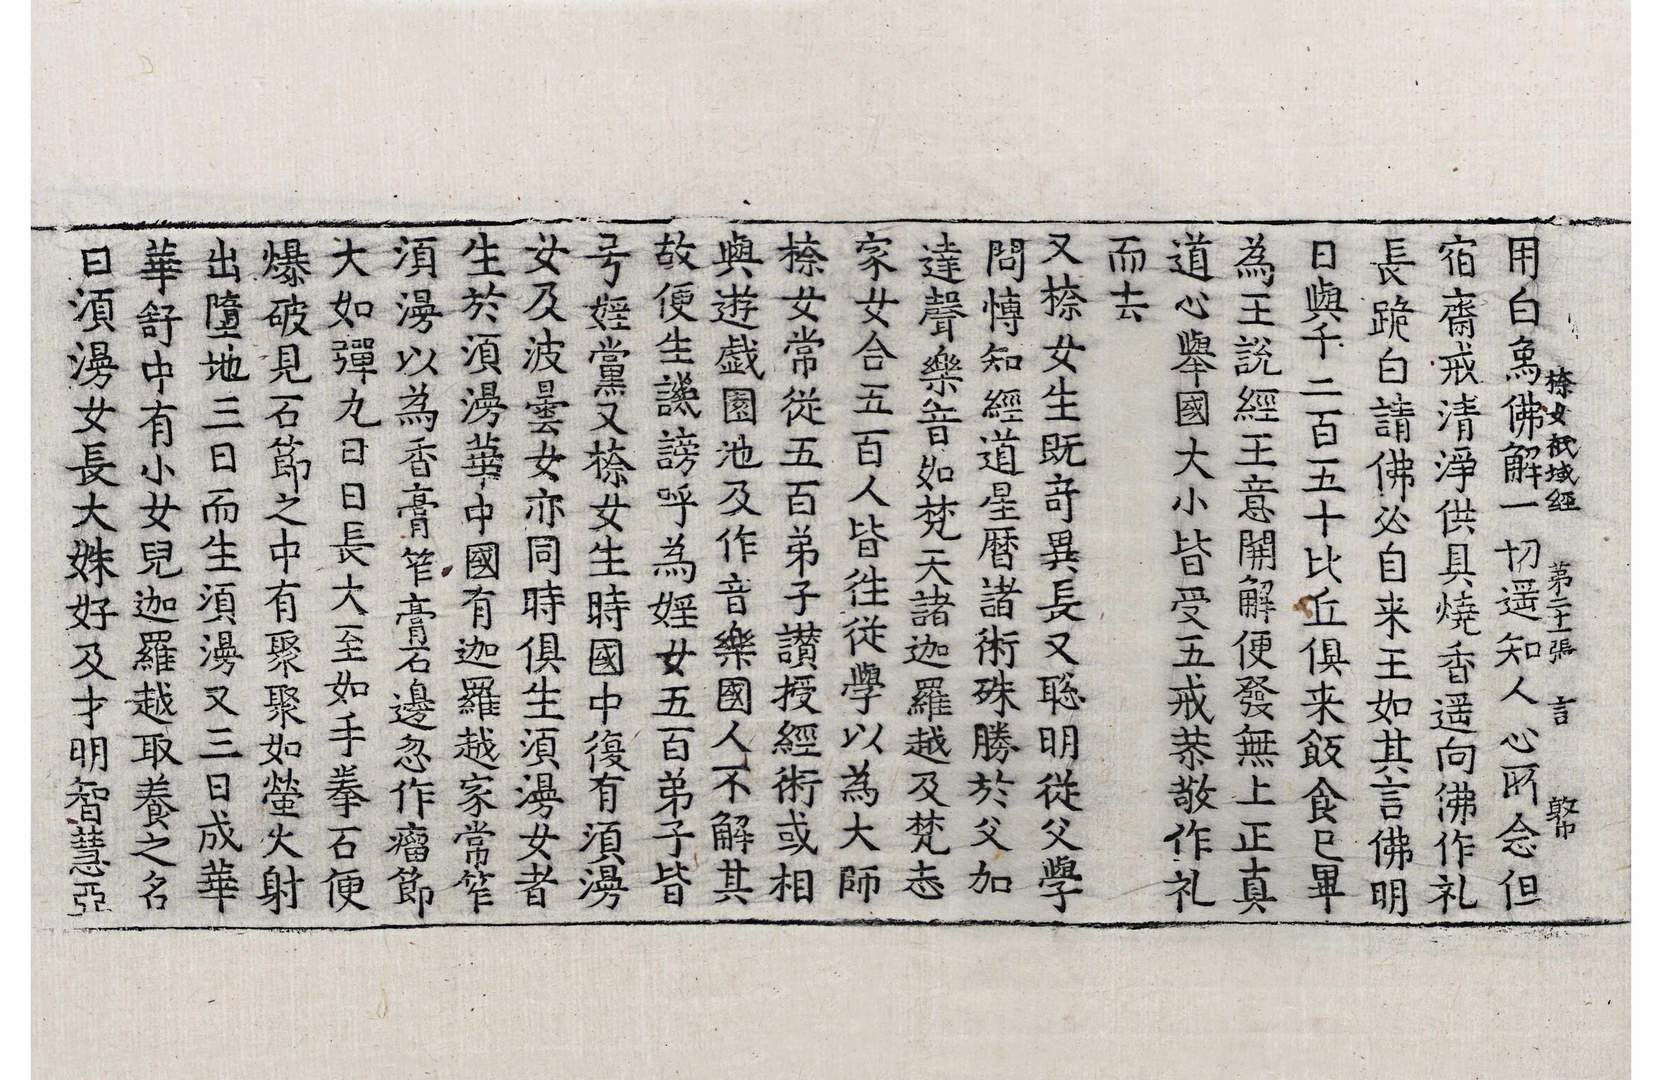 㮈女祇域經 第二十張 言
用白爲佛解一切遥知人心所念但
宿齋戒清淨供具燒香遥向佛作礼
長跪白請佛必自来王如其言佛明
日與千二百五十比丘俱来飯食已畢
為王說經王意開解便發無上正真
道心舉國大小皆受五戒恭敬作礼
而去
又㮈女生既竒異長又聡明從父學
問愽知經道星曆諸術殊勝於父加
達聲樂音如梵天諸迦羅越及梵志
家女合五百人皆往從學以為大師
㮈女常從五百弟子讃授經術或相
與遊戯園池及作音樂國人不解其
故便生譏謗呼為婬女五百弟子皆
号婬黨又㮈女生時國中復有湏漫
女及波曇女亦同時俱生湏漫女者
生於湏漫華中國有迦羅越家常笮
湏漫以為香膏笮膏石邊忽作瘤節
大如彈丸日日長大至如手拳石便
爆破見石節之中有聚聚如螢火射
出墮地三日而生湏漫又三日成華
華舒中有小女兒迦羅越取養之名
曰湏漫女長大姝好及才明智慧亞